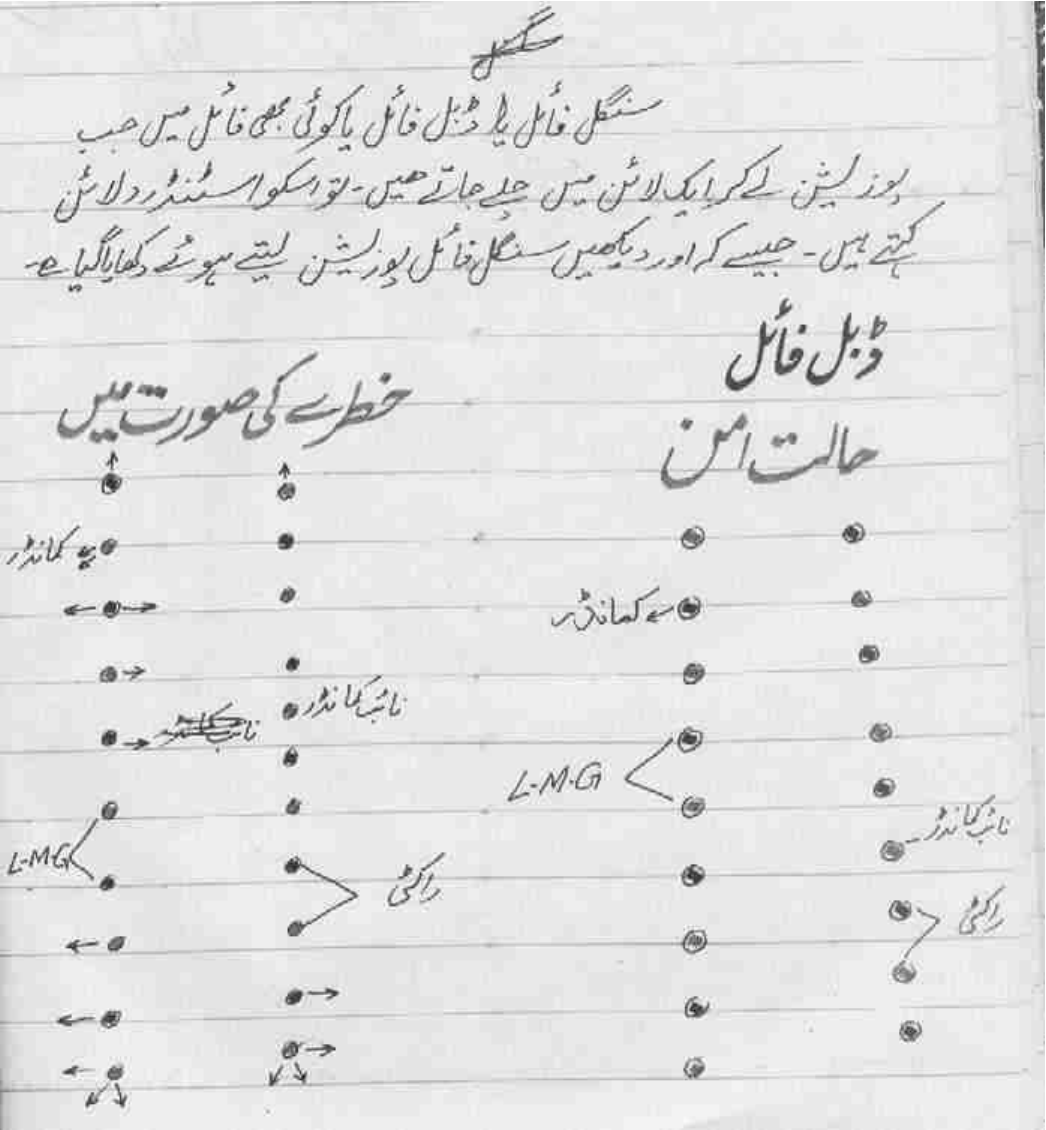 سنگل
سنگل فائل یا ڈبل فائل یا کوئی بھی فائل میں جب
پوزیشن لے کر ایک لائن میں چلے جاتے ھیں۔ تو اسکو اسٹنڈرد لائن
کہتے ہیں۔ جیسے کہ اور دیکھیں سنگل فائل پوزیشن لیتے ہوئے دکھایا گیا ہے۔
ڈبل فائل
حالت امن
کمانڈر
نائب کمانڈر
L.M.G
راکٹی
خطرے کی صورت میں
کمانڈر
نائب کمانڈر
نائب کمانڈر
L-M-G
راکٹی